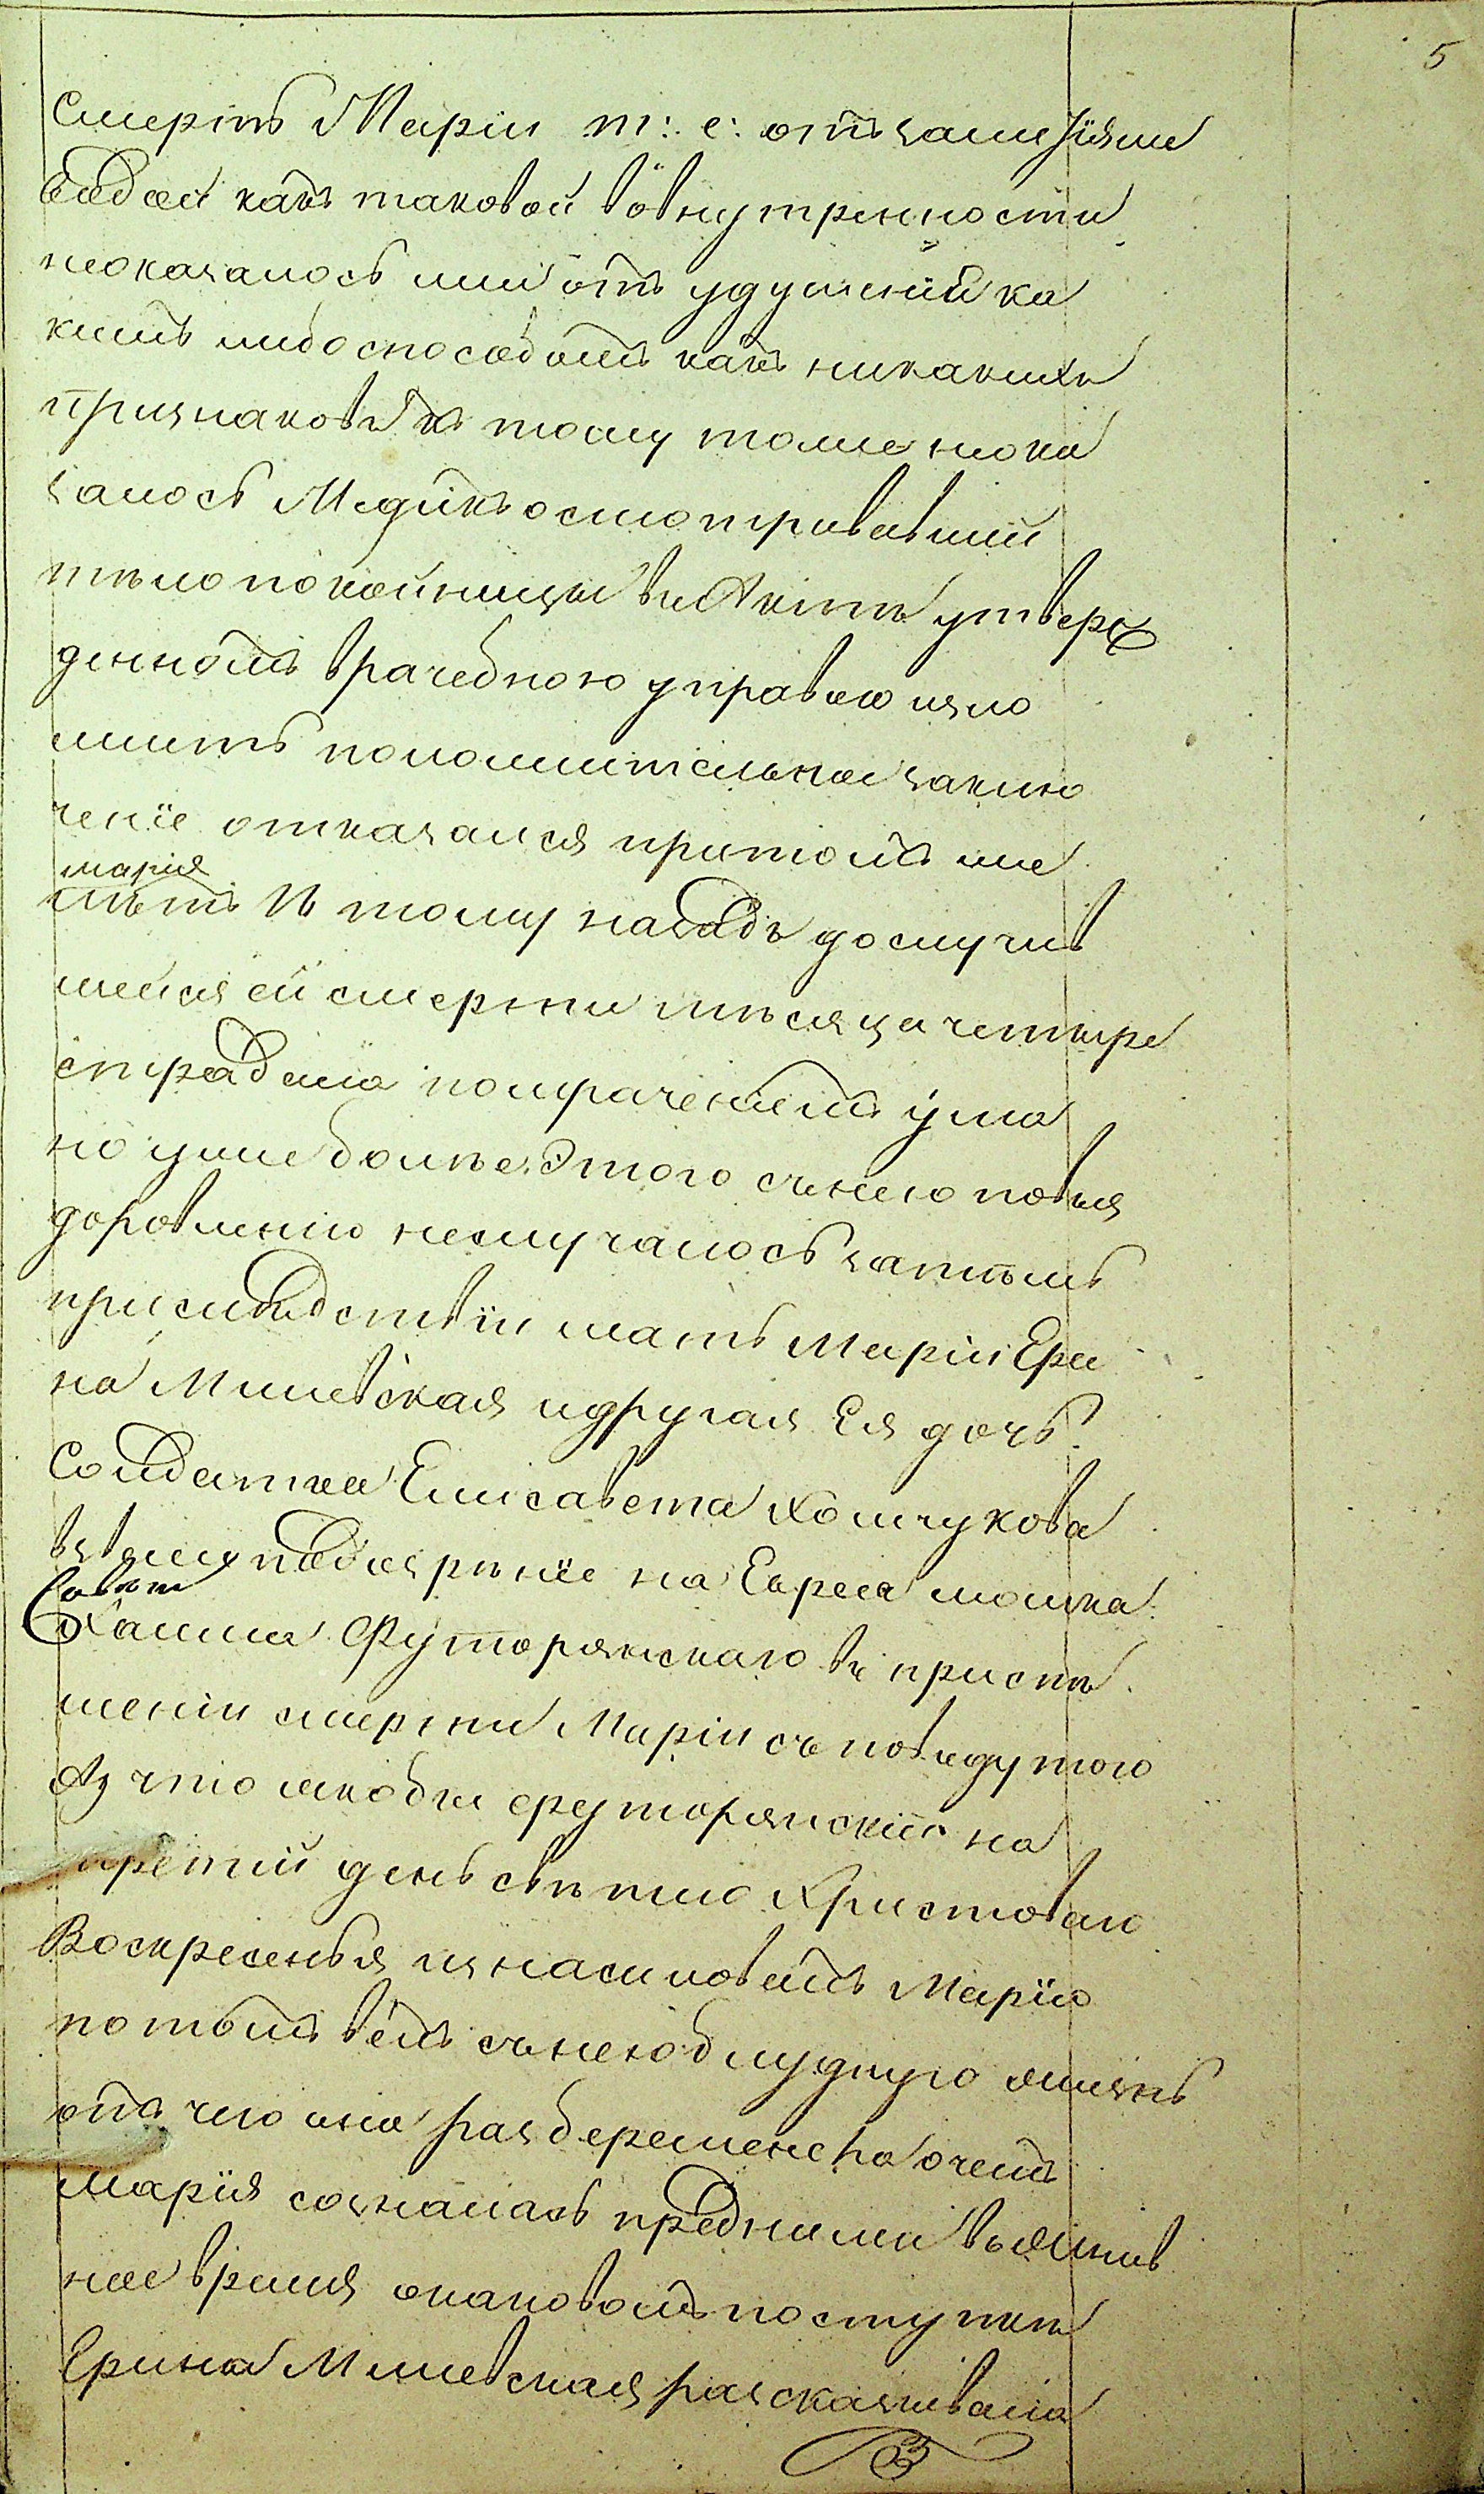 5
Смерть Маріи т: е: отъ замерзія ме
водой какъ таковой вовнутренности
неоказалось или отъ удушеній ка
кимъ либо способомъ какъ никакихъ
признаковъ къ тому тоже неока
залось Медикъ осмотривавшій
тѣло покойницы въ Актѣ утверж
денномъ врачебною управою изло
жить положительное заклю
ченіе отказался притомъ же
марія
лѣтъ къ тому назадъ дослучив
шейся ей смерти мѣсяца четыре
страдала помраченіемъ ума
но уже болѣе этого снею повыз
доровленію неслучалось затѣмъ
прислѣдствіи мать Маріи Ери
на Мишевская идругая Ея дочь
Солдатка Елисавета Хомчукова
взвели подозрѣніе на Еврея мошка
Хаима Футорянскаго въ приспѣ
шеніи смерти Маріи съ поводу того
что якобы футорянскій на
третій день свѣтло Христоваго
Воскресенья изнасиловалъ Марію
потомъ велъ снею блудную жизнь
отъ чего она разберемене ла очемъ
марія созналась предними въяжив
нее время отаковомъ поступкѣ
Ерина Мишевская разсказывала